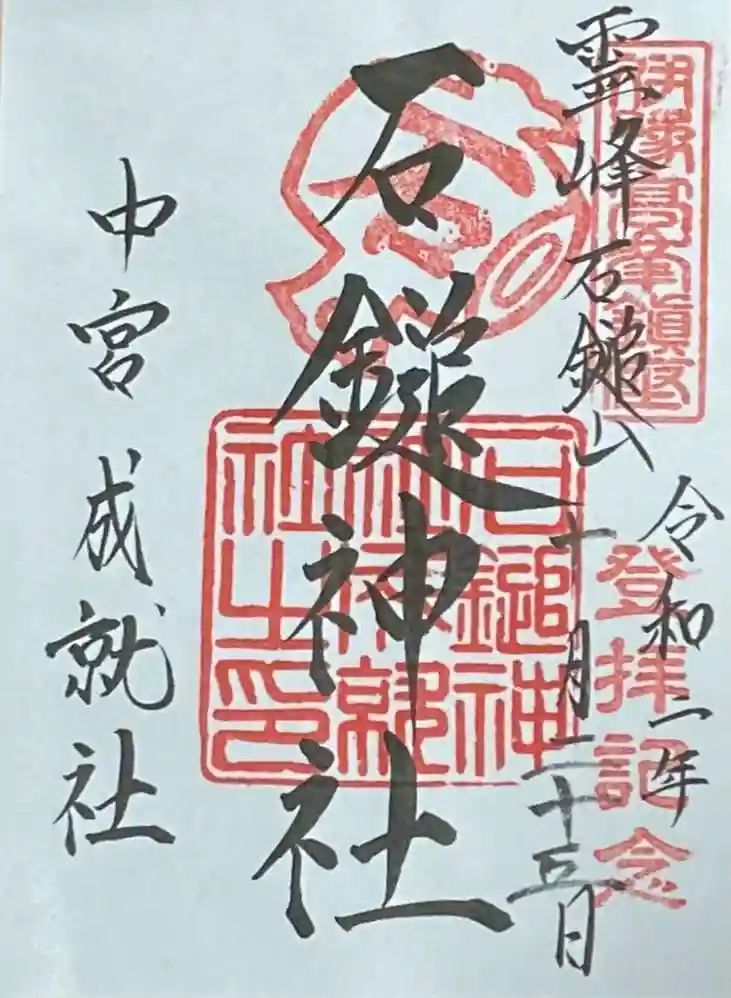 霊峰石鎚山
登拝記念
令和二年
十月二十五日
石鎚神社
石鎚神
社成就
社之印
中宮成就社